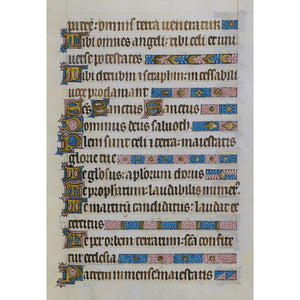 patrē: omnis terra veneratur
Tibi omnes angeli: tibi celi et uni
verse potestates
Tibi cherubim et seraphin: incessabili
voce proclamant
Scs Sanctus Sanctus
Dominus deus sabaoth
Pleni sunt celi et terra: maiestatis
glorie tue
Te glosus: aplorum chorus
Te prophetarum: laudabilis numer⁹
Te martirū candidatus: laudat ex
ercitus
Te per orbem terrarum: sca confite
tur ecclesia
Patrem immense maiestatis